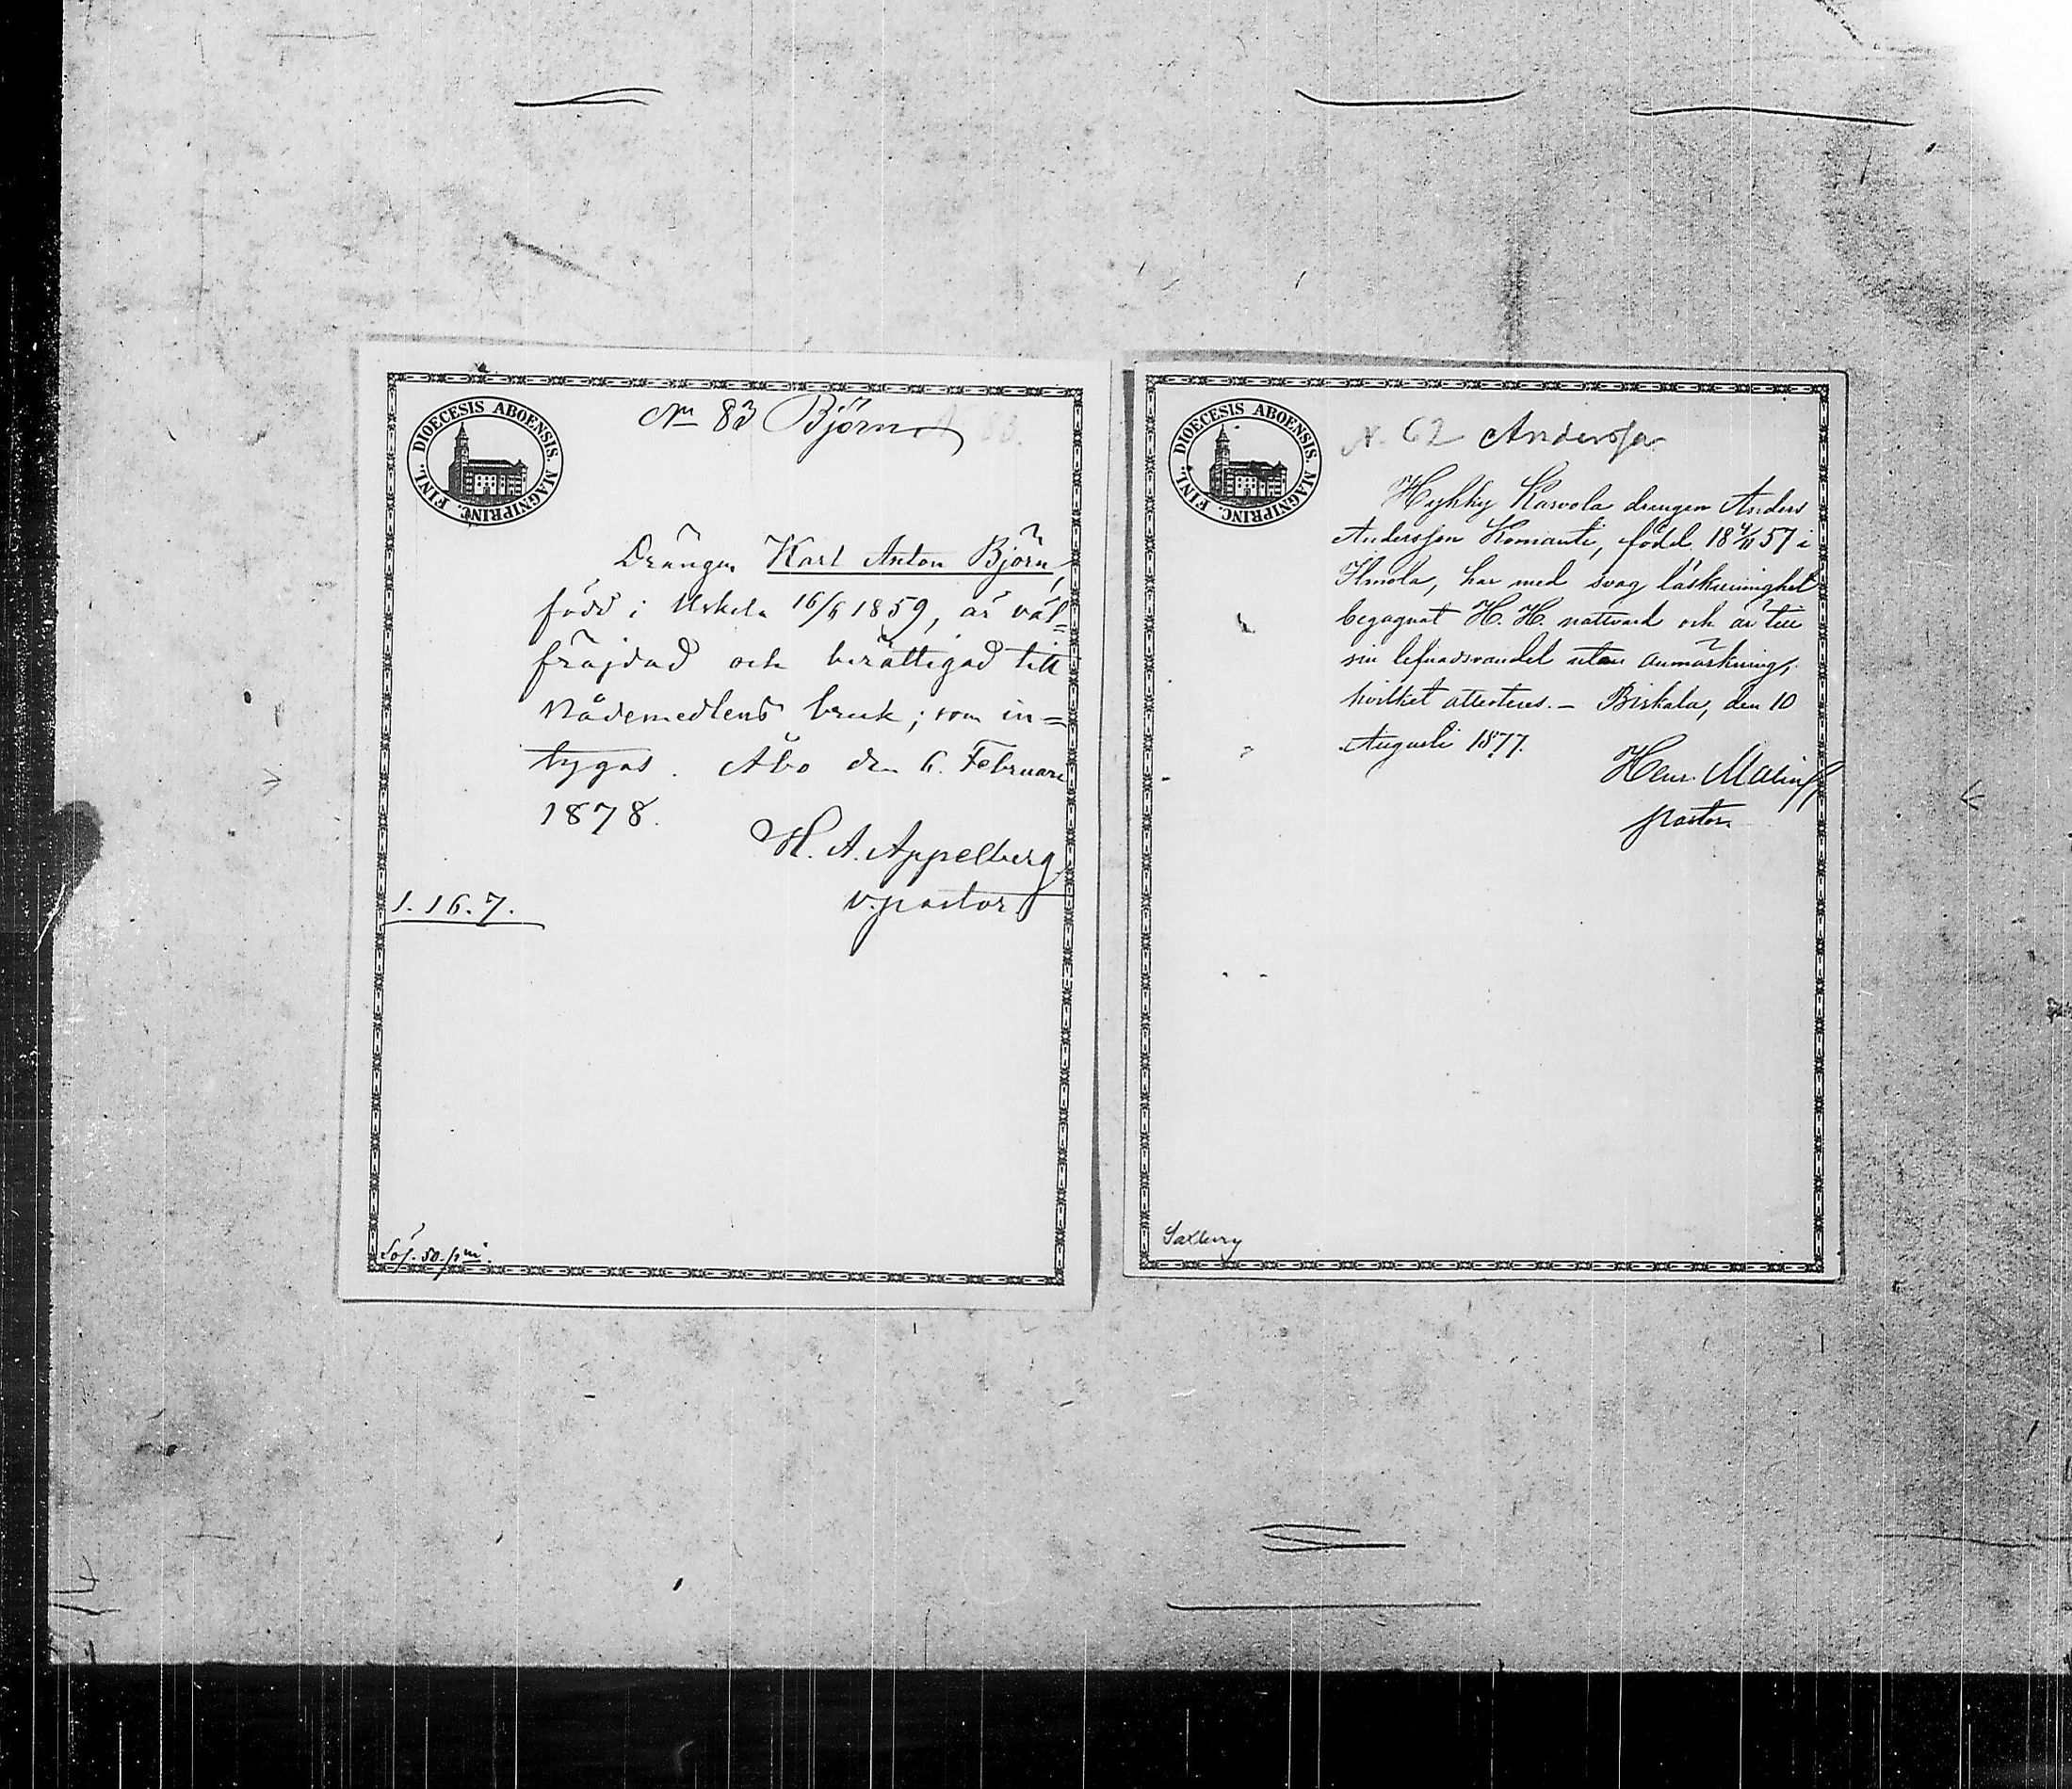 DIOECESIS ABOENSIS. MAGNIPRINC. FINL.
No 83 Björn
83.
Drängen Karl Anton Björn,
född i Uskela 16/6 1859, är väl=
fräjdad och berättigad till
Nådemedlens bruk; som in=
tygas. Åbo den 6. Februari
1878.
H. A. Appelberg
v. pastor
1. 16. 7.
Lös. 50. pni.
DIOECESIS ABOENSIS. MAGNIPRINC. FINL.
N. 62 Andersson
Hyhky Karvola drengen Anders
Andersson Komanti, född 18 57 i
Ilmola, har med svag läskunnighet
begagnat H. H. nattvard och är till
sin lefnadsvandel utan anmärkning,
hvilket attesteras. – Birkala, den 10
Augusti 1877.
Henr. Malin
pastor
Saxberg